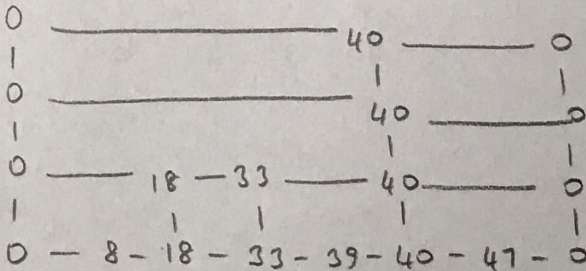 0 40 0
0 40 0
0 18 33 40 0
0 8 18 33 39 40 47 0